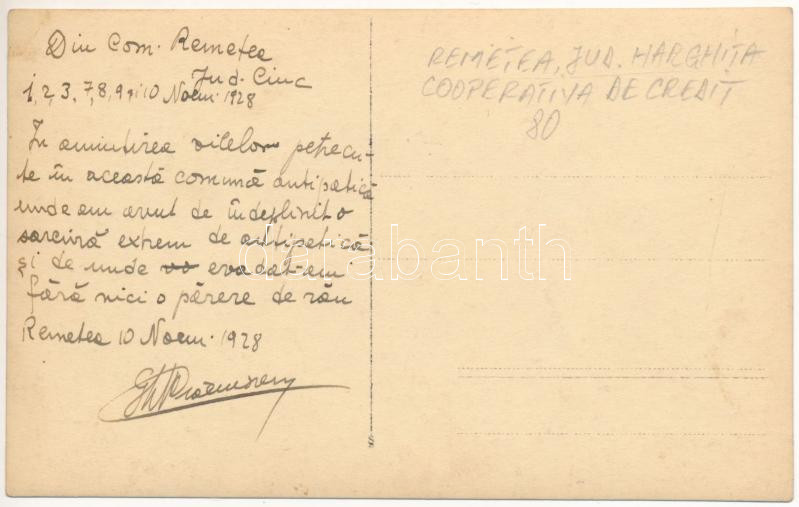 Din Com. Remetea
Jud. Ciuc
1, 2, 3, 7, 8, 9 și 10 Noem. 1928
În amintirea zilelor petrecu-
te în această comună antipatică
unde am avut de îndeplinit o
sarcină extrem de antipatică
și de unde evadat-am
fără nici o părere de rău
Remetea 10 Noem. 1928
REMETEA, JUD. HARGHITA
COOPERATIVA DE CREDIT
80
darabanth